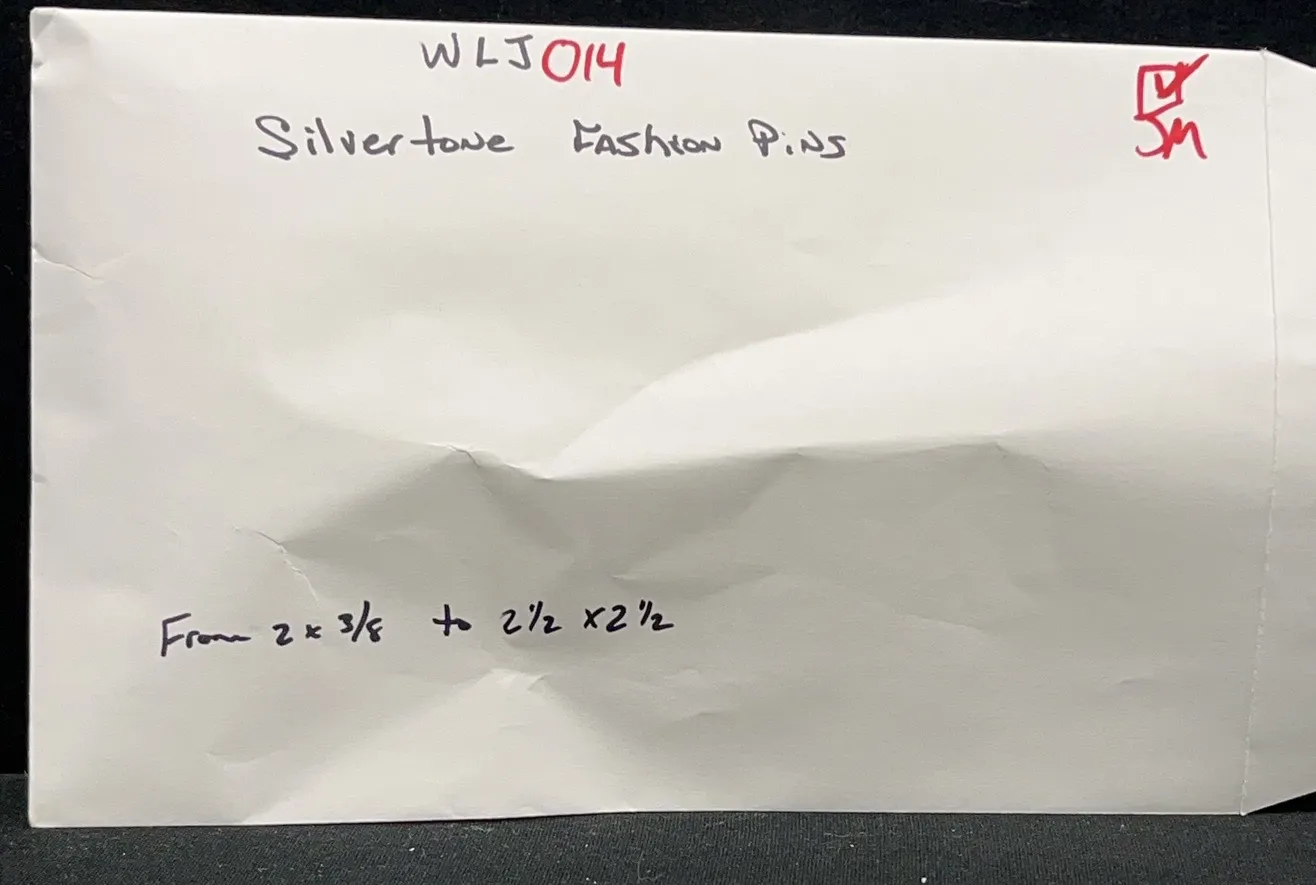 WLJ014
Silvertone Fashion Pins
JM
From 2 x 3/8 to 2 1/2 x 2 1/2